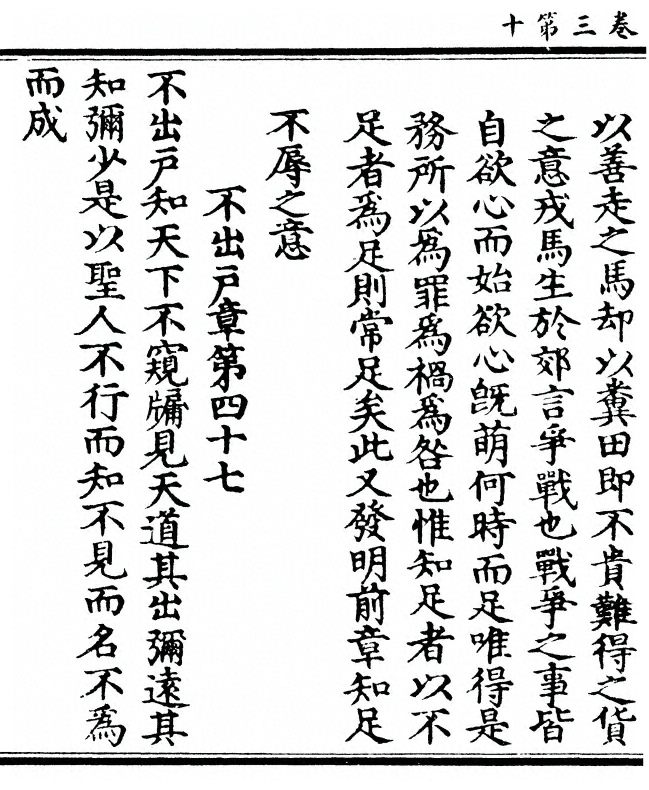 卷三第十
以善走之馬却以糞田即不貴難得之貨
之意戎馬生於郊言爭戰也戰爭之事皆
自欲心而始欲心旣萌何時而足唯得是
務所以爲罪爲禍爲咎也惟知足者以不
足者爲足則常足矣此又發明前章知足
不辱之意
不出戸章第四十七
不出戸知天下不窺牖見天道其出彌遠其
知彌少是以聖人不行而知不見而名不爲
而成